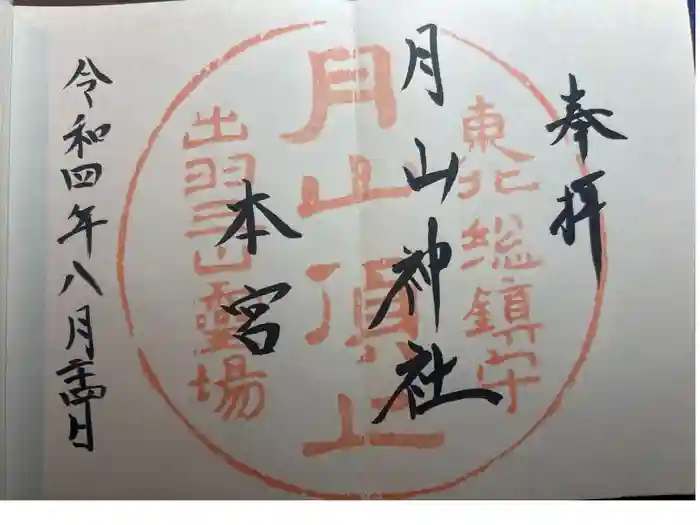 奉拝
東北総鎮守
月山神社
月山頂上
本宮
出羽三山霊場
令和四年八月二十四日